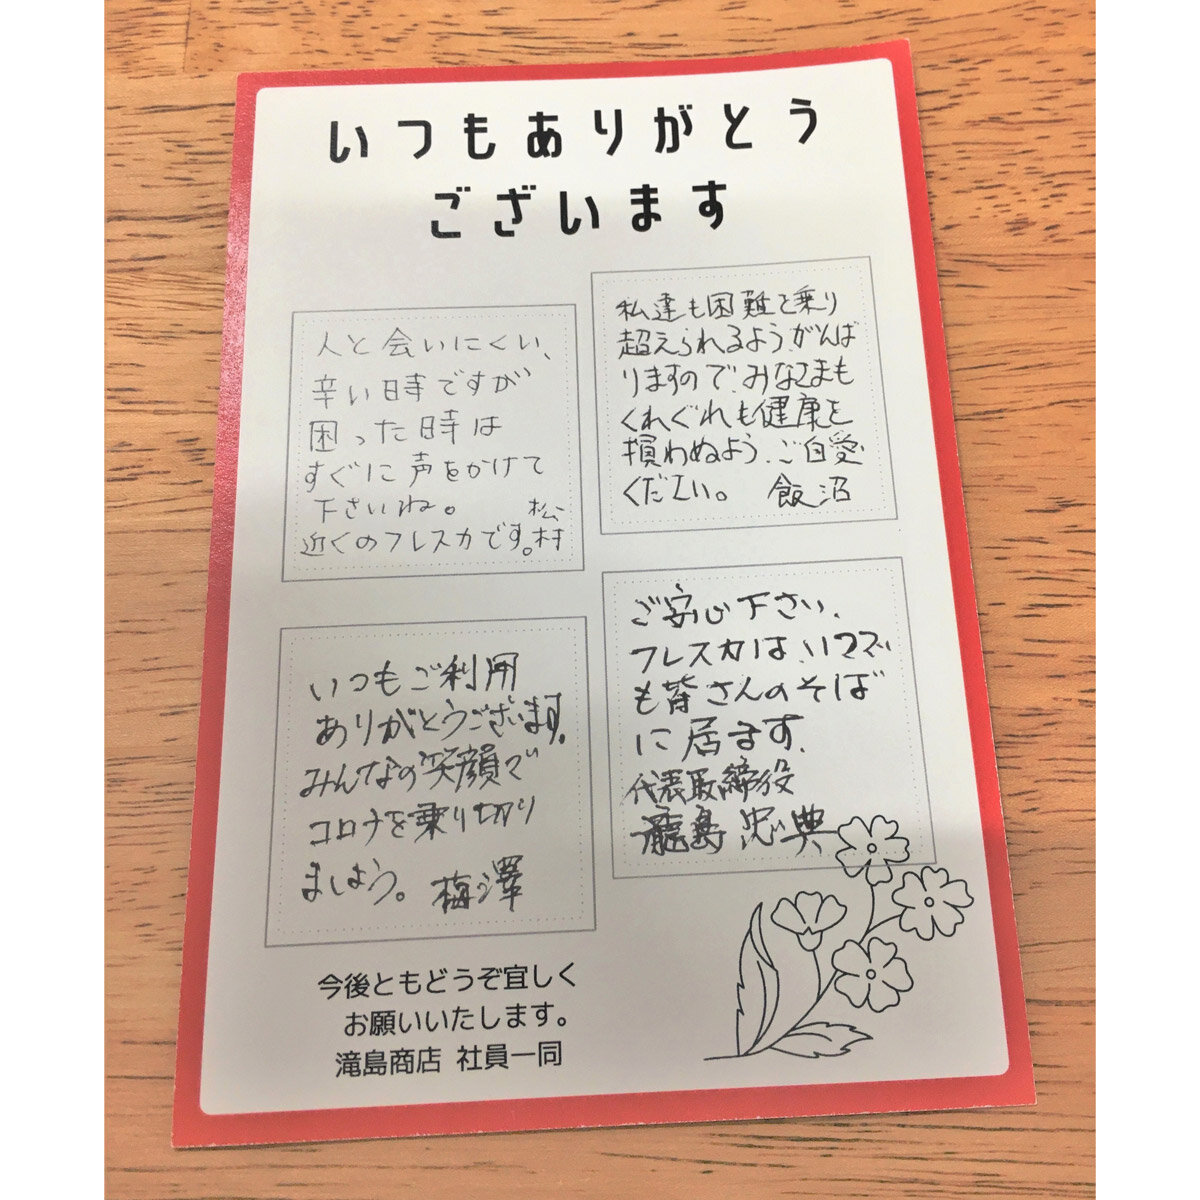 いつもありがとう
ございます
人と会いにくい、
辛い時ですが
困った時は
すぐに声をかけて
下さいね。
近くのフレスカです。
松村
私達も困難を乗り
超えられるよう、がんば
りますので、みなさまも
くれぐれも健康を
損わぬよう、ご自愛
ください。 飯沼
いつもご利用
ありがとうございます。
みんなの笑顔で
コロナを乗り切り
ましょう。 梅澤
ご安心下さい、
フレスカは、いつでも
も皆さんのそば
に居ます、
代表取締役
瀧島 忠典
今後ともどうぞ宜しく
お願いいたします。
滝島商店 社員一同